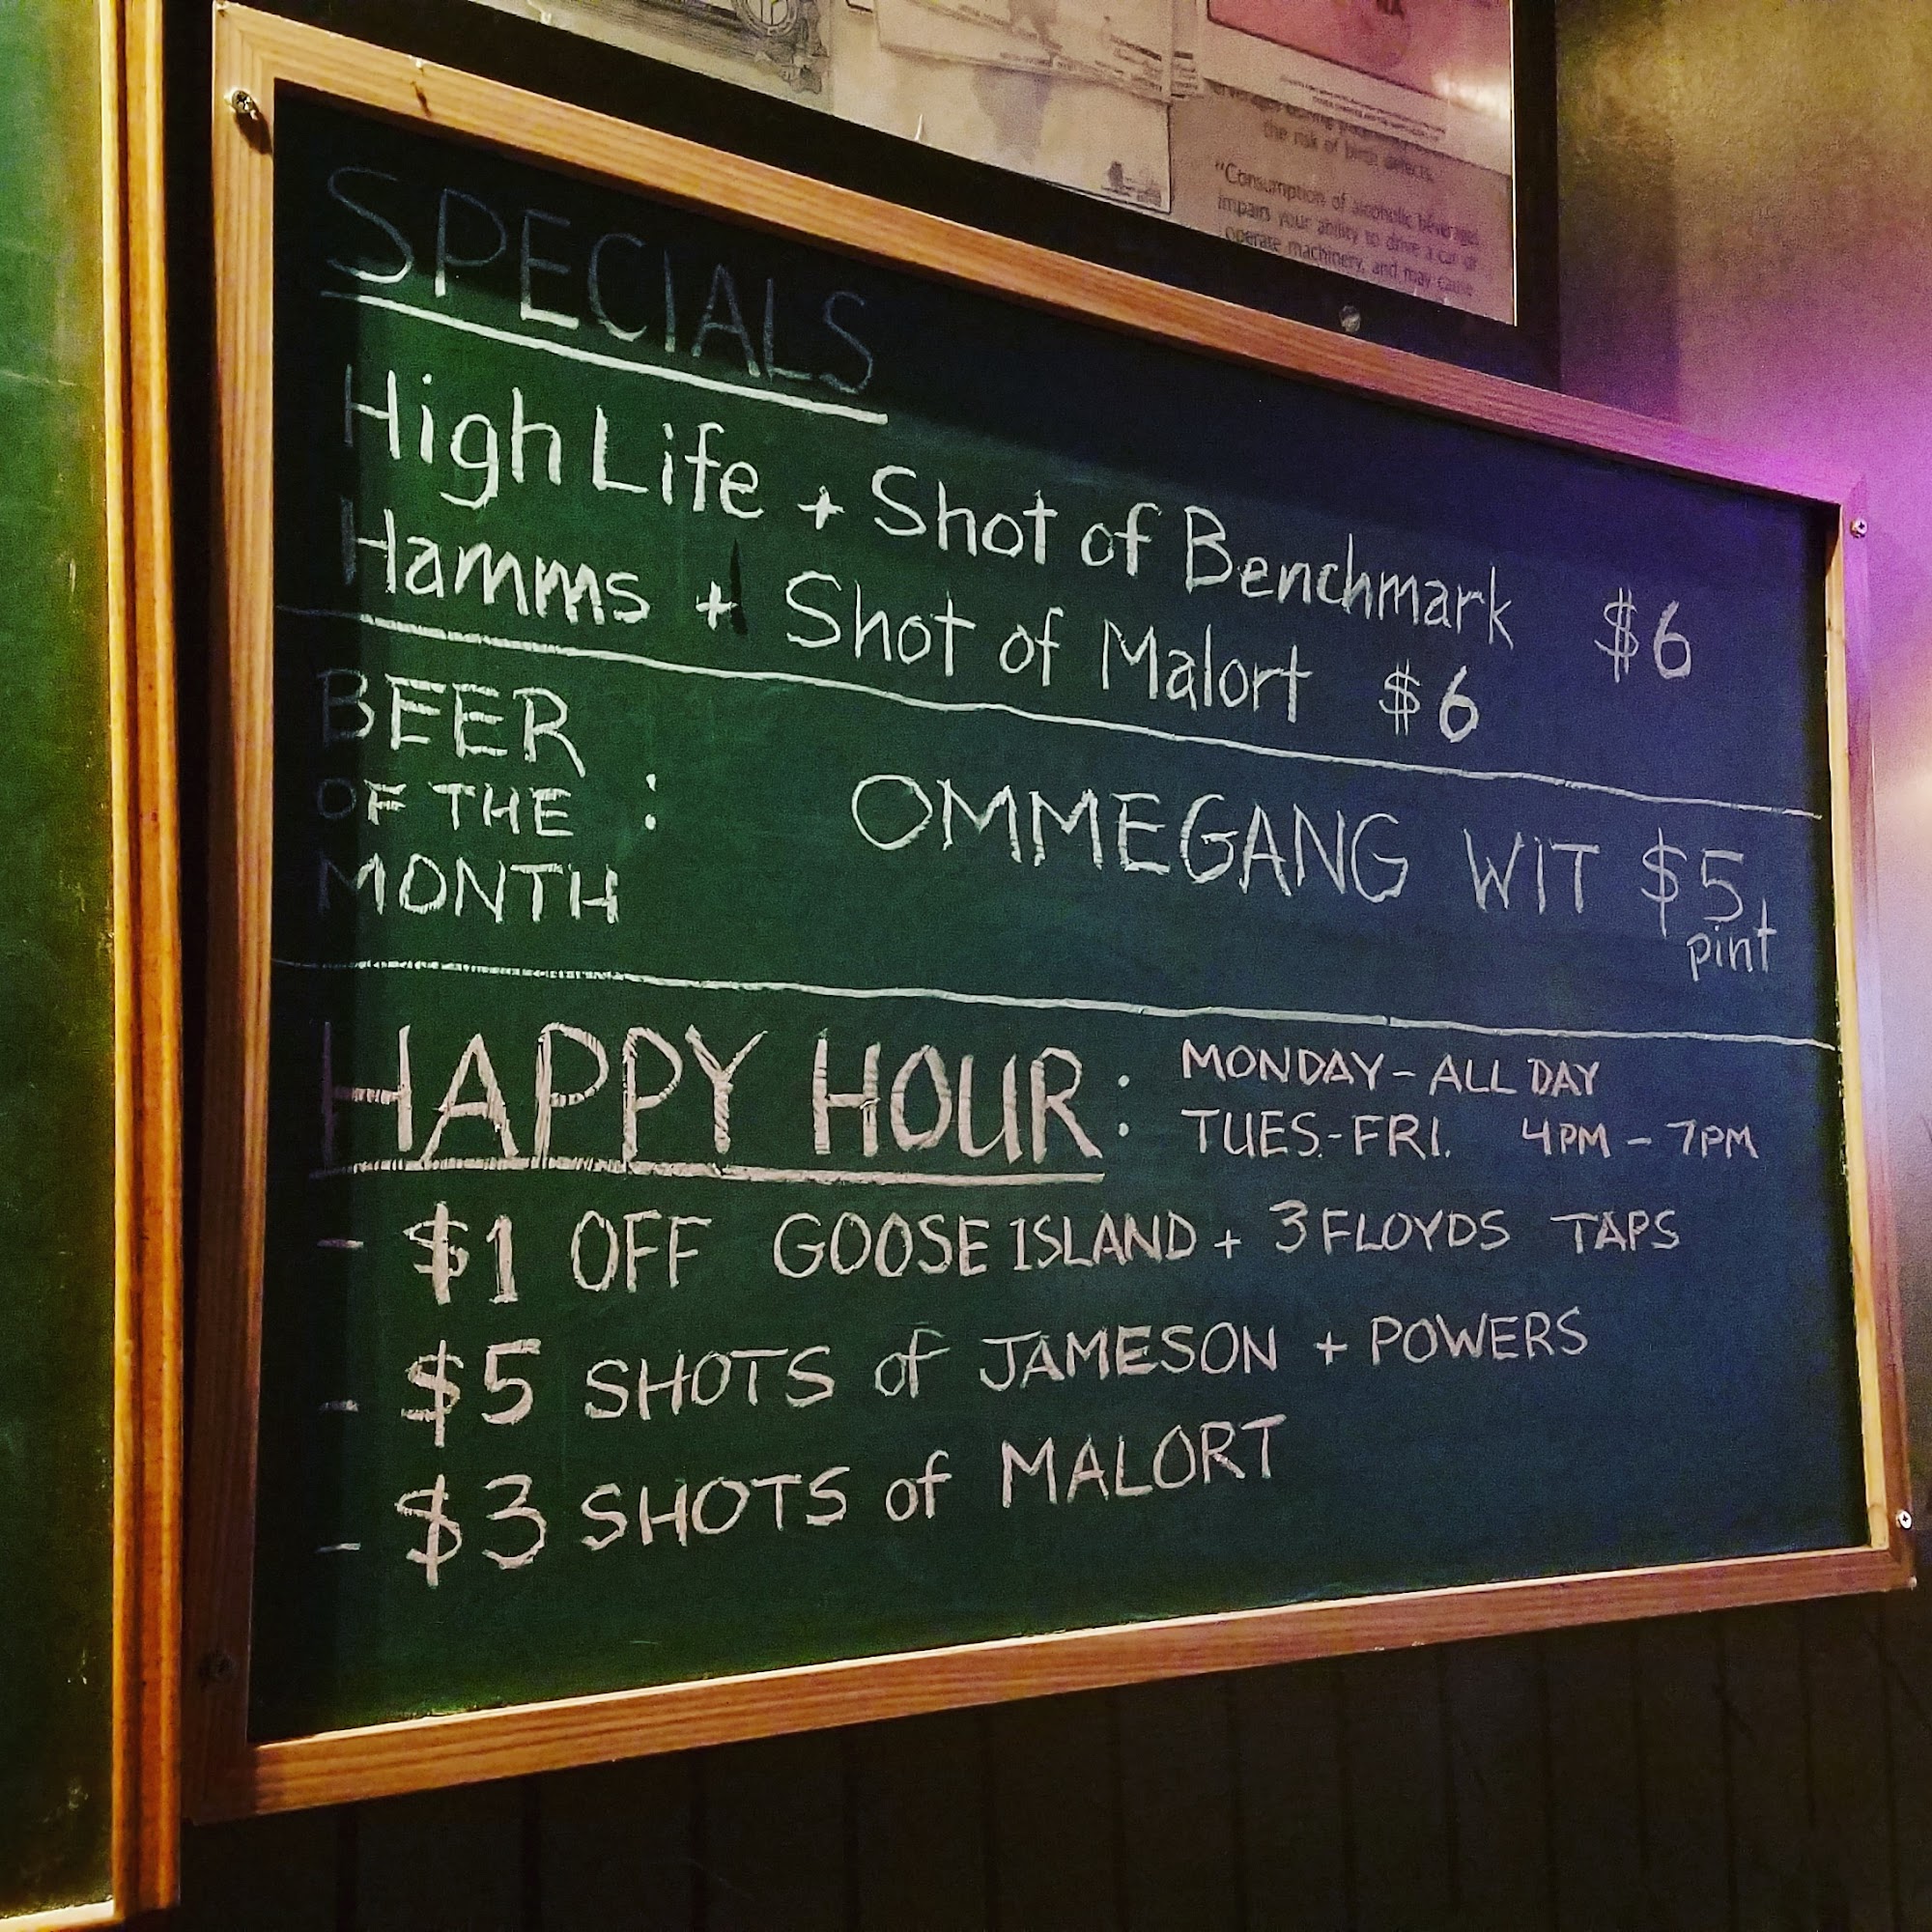 the risk of birth defects.
"Consumption of alcoholic beverages
impairs your ability to drive a car or
operate machinery, and may cause
SPECIALS
High Life + Shot of Benchmark $6
Hamms + Shot of Malort $6
BEER
OF THE :
MONTH
OMMEGANG WIT $5
pint
HAPPY HOUR:
MONDAY - ALL DAY
TUES.-FRI. 4PM - 7PM
- $1 OFF GOOSE ISLAND + 3 FLOYDS TAPS
- $5 SHOTS of JAMESON + POWERS
- $3 SHOTS of MALORT